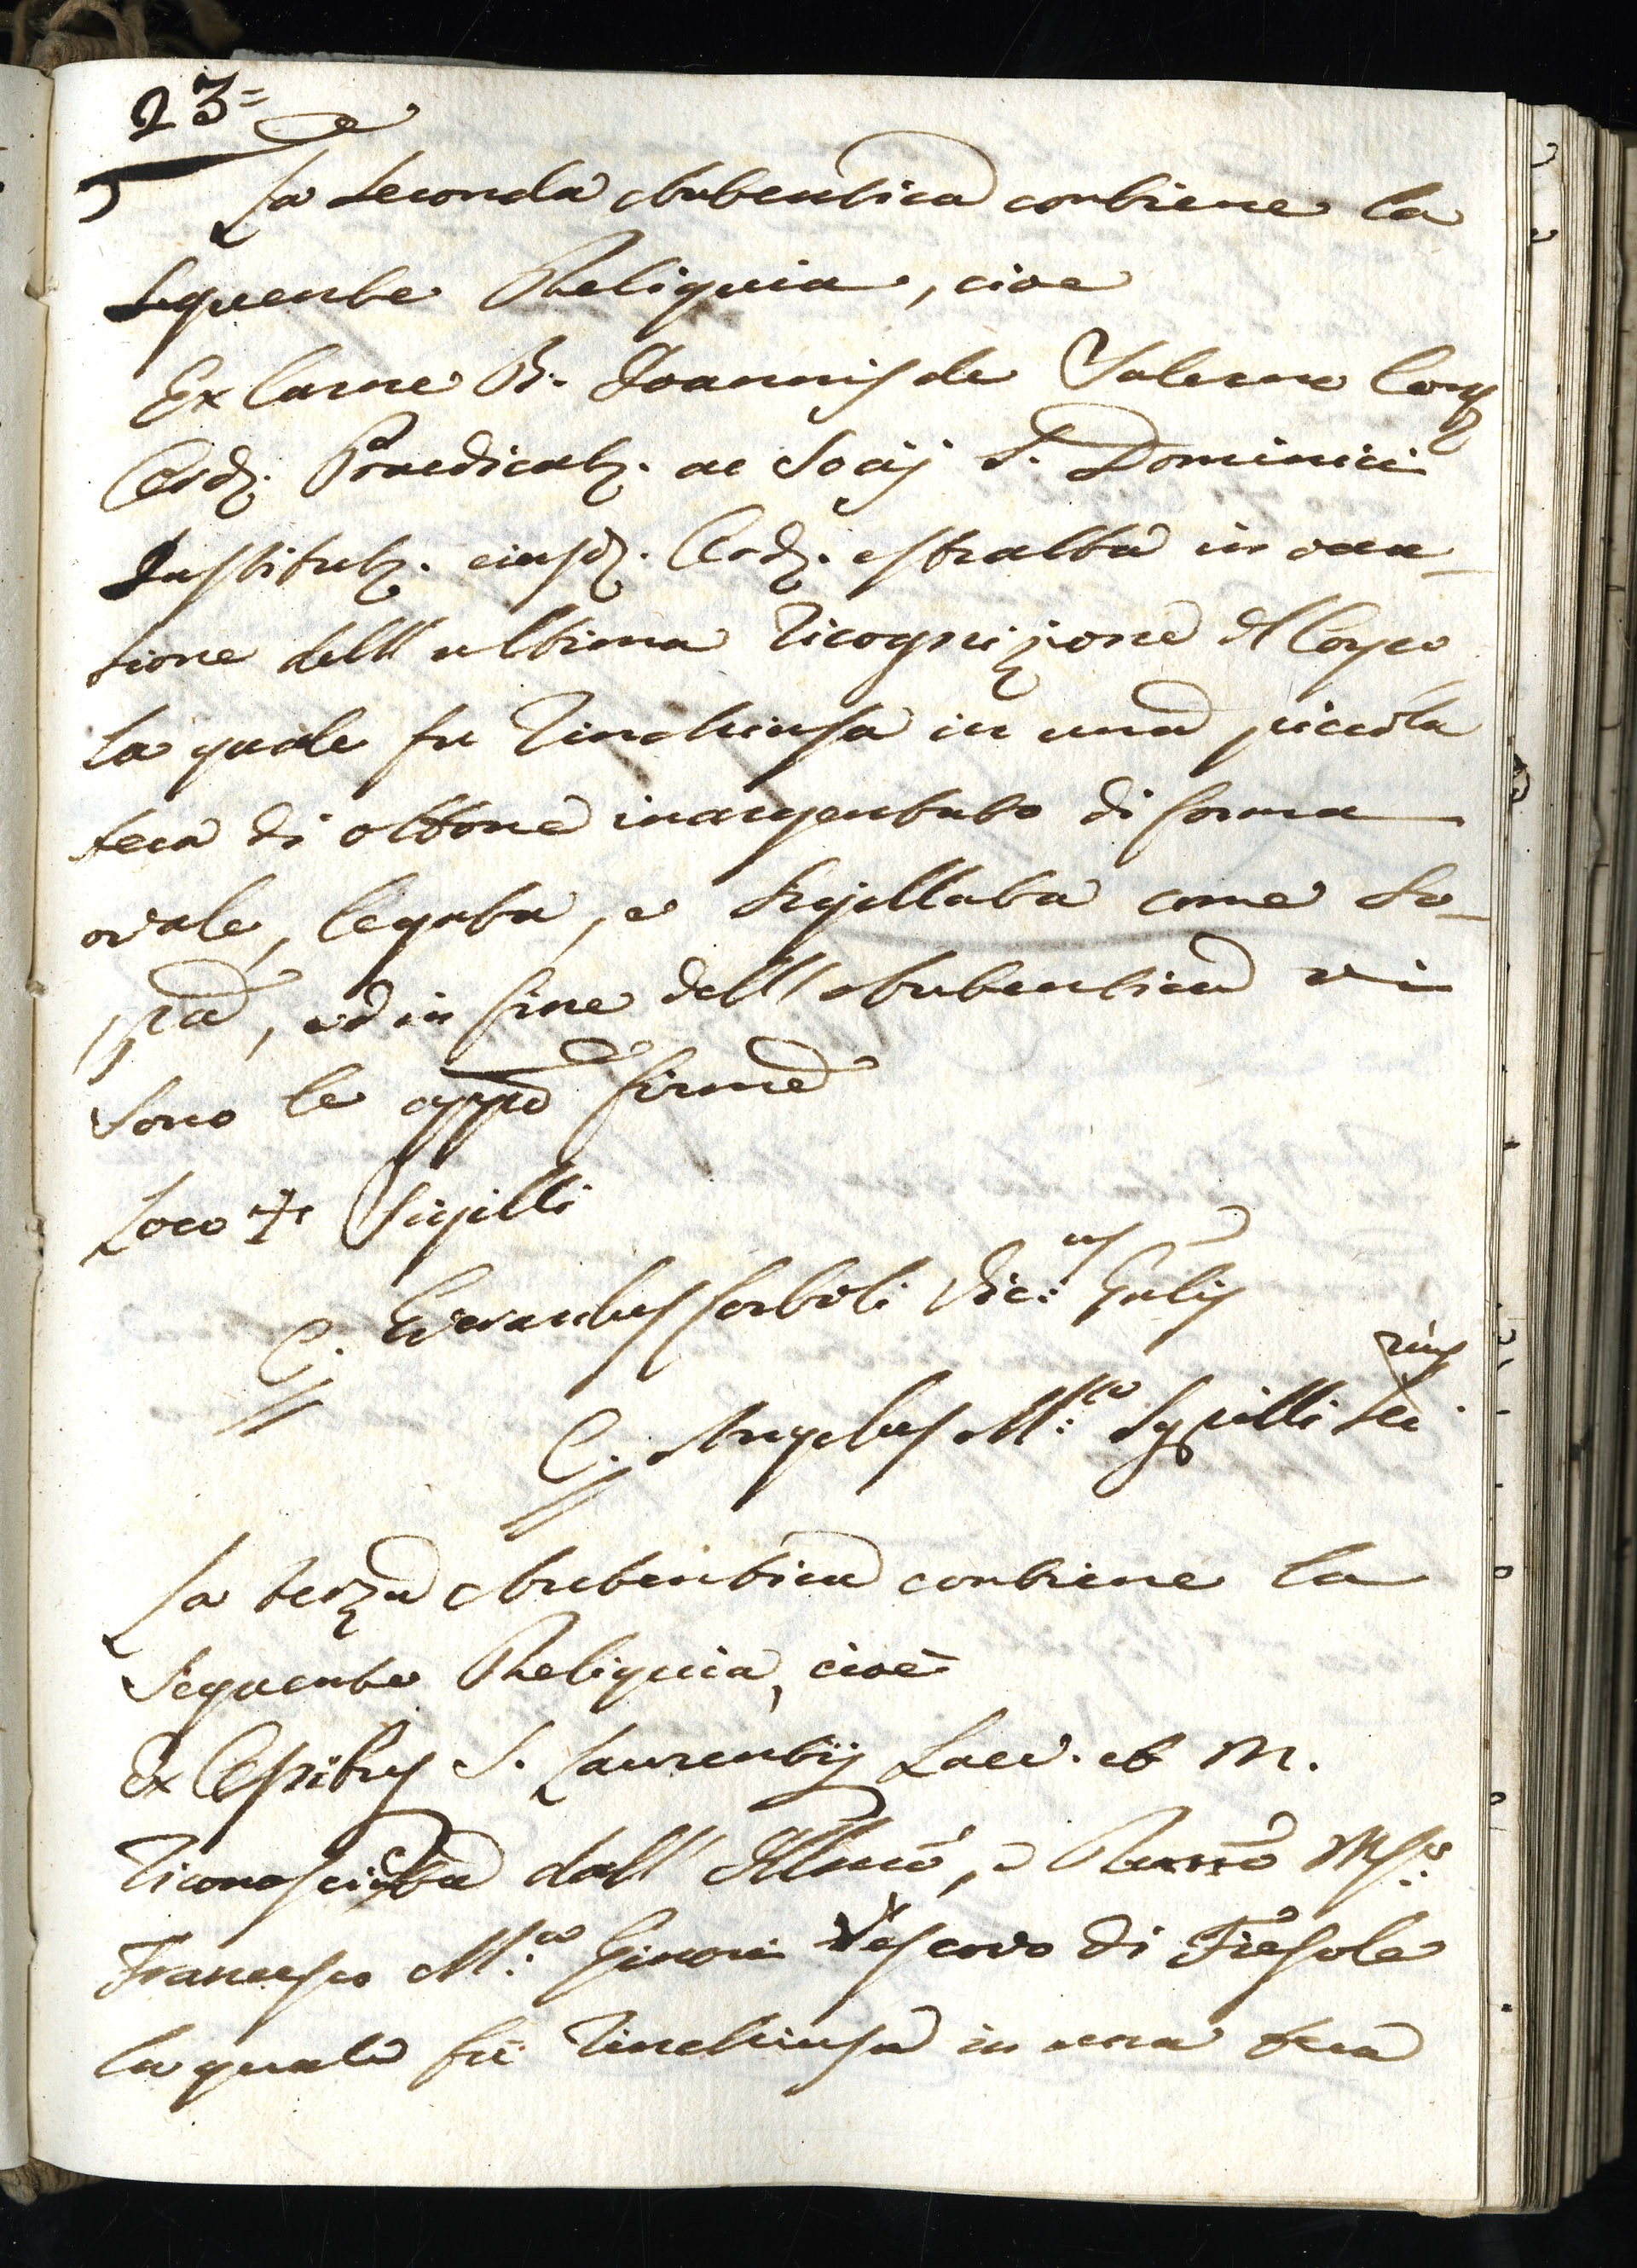 23=
La seconda Autentica contiene la
seguente Reliquia, cioe
Ex Carne B. Joannis de Salerno Conf
Ord. Praedicat. ac Socij S. Dominici
Institut. eiusd. Ord. estratta in occa-
sione dell'ultima ricognizione del Corpo
la quale fu rinchiusa in una piccola
teca di ottone inargentato di forma
ovale, legata, e sigillata come so-
pra, ed in fine dell'Autentica vi
sono le appe firme
Loco + Sigilli
C. Evvandus Corboli Vic:us Gnlis
C. Angelus M:a Sigilli
La terza Autentica contiene la
Seguente Reliquia, cioè
Ex Ossibus S. Laurentij Laev. et M.
riconosciuta dall' Illmo, e Revmo Msr:
Francesco M:a Ginori Vescovo di Fiesole
la quale fù rinchiusa in una teca